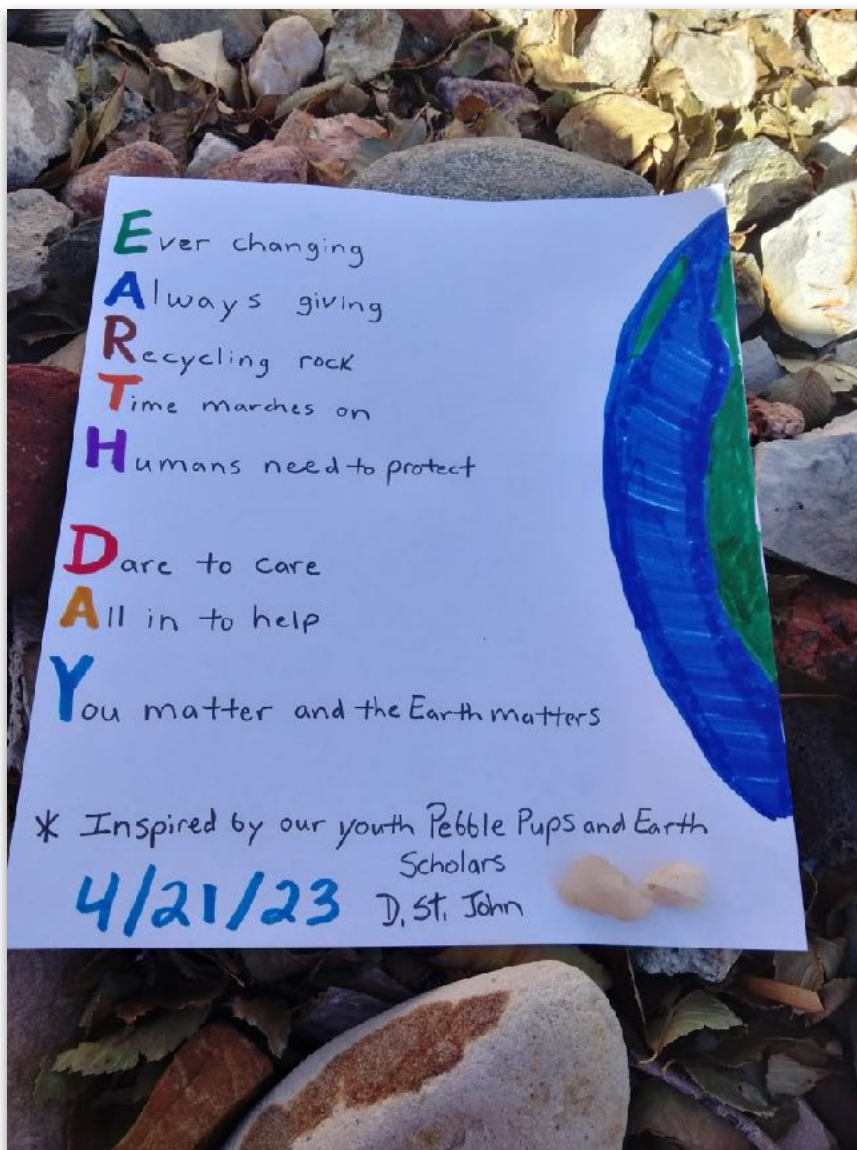 Ever changing
Always giving
Recycling rock
Time marches on
Humans need to protect
Dare to care
All in to help
You matter and the Earth matters
* Inspired by our youth Pebble Pups and Earth
Scholars
4/21/23 D. St. John